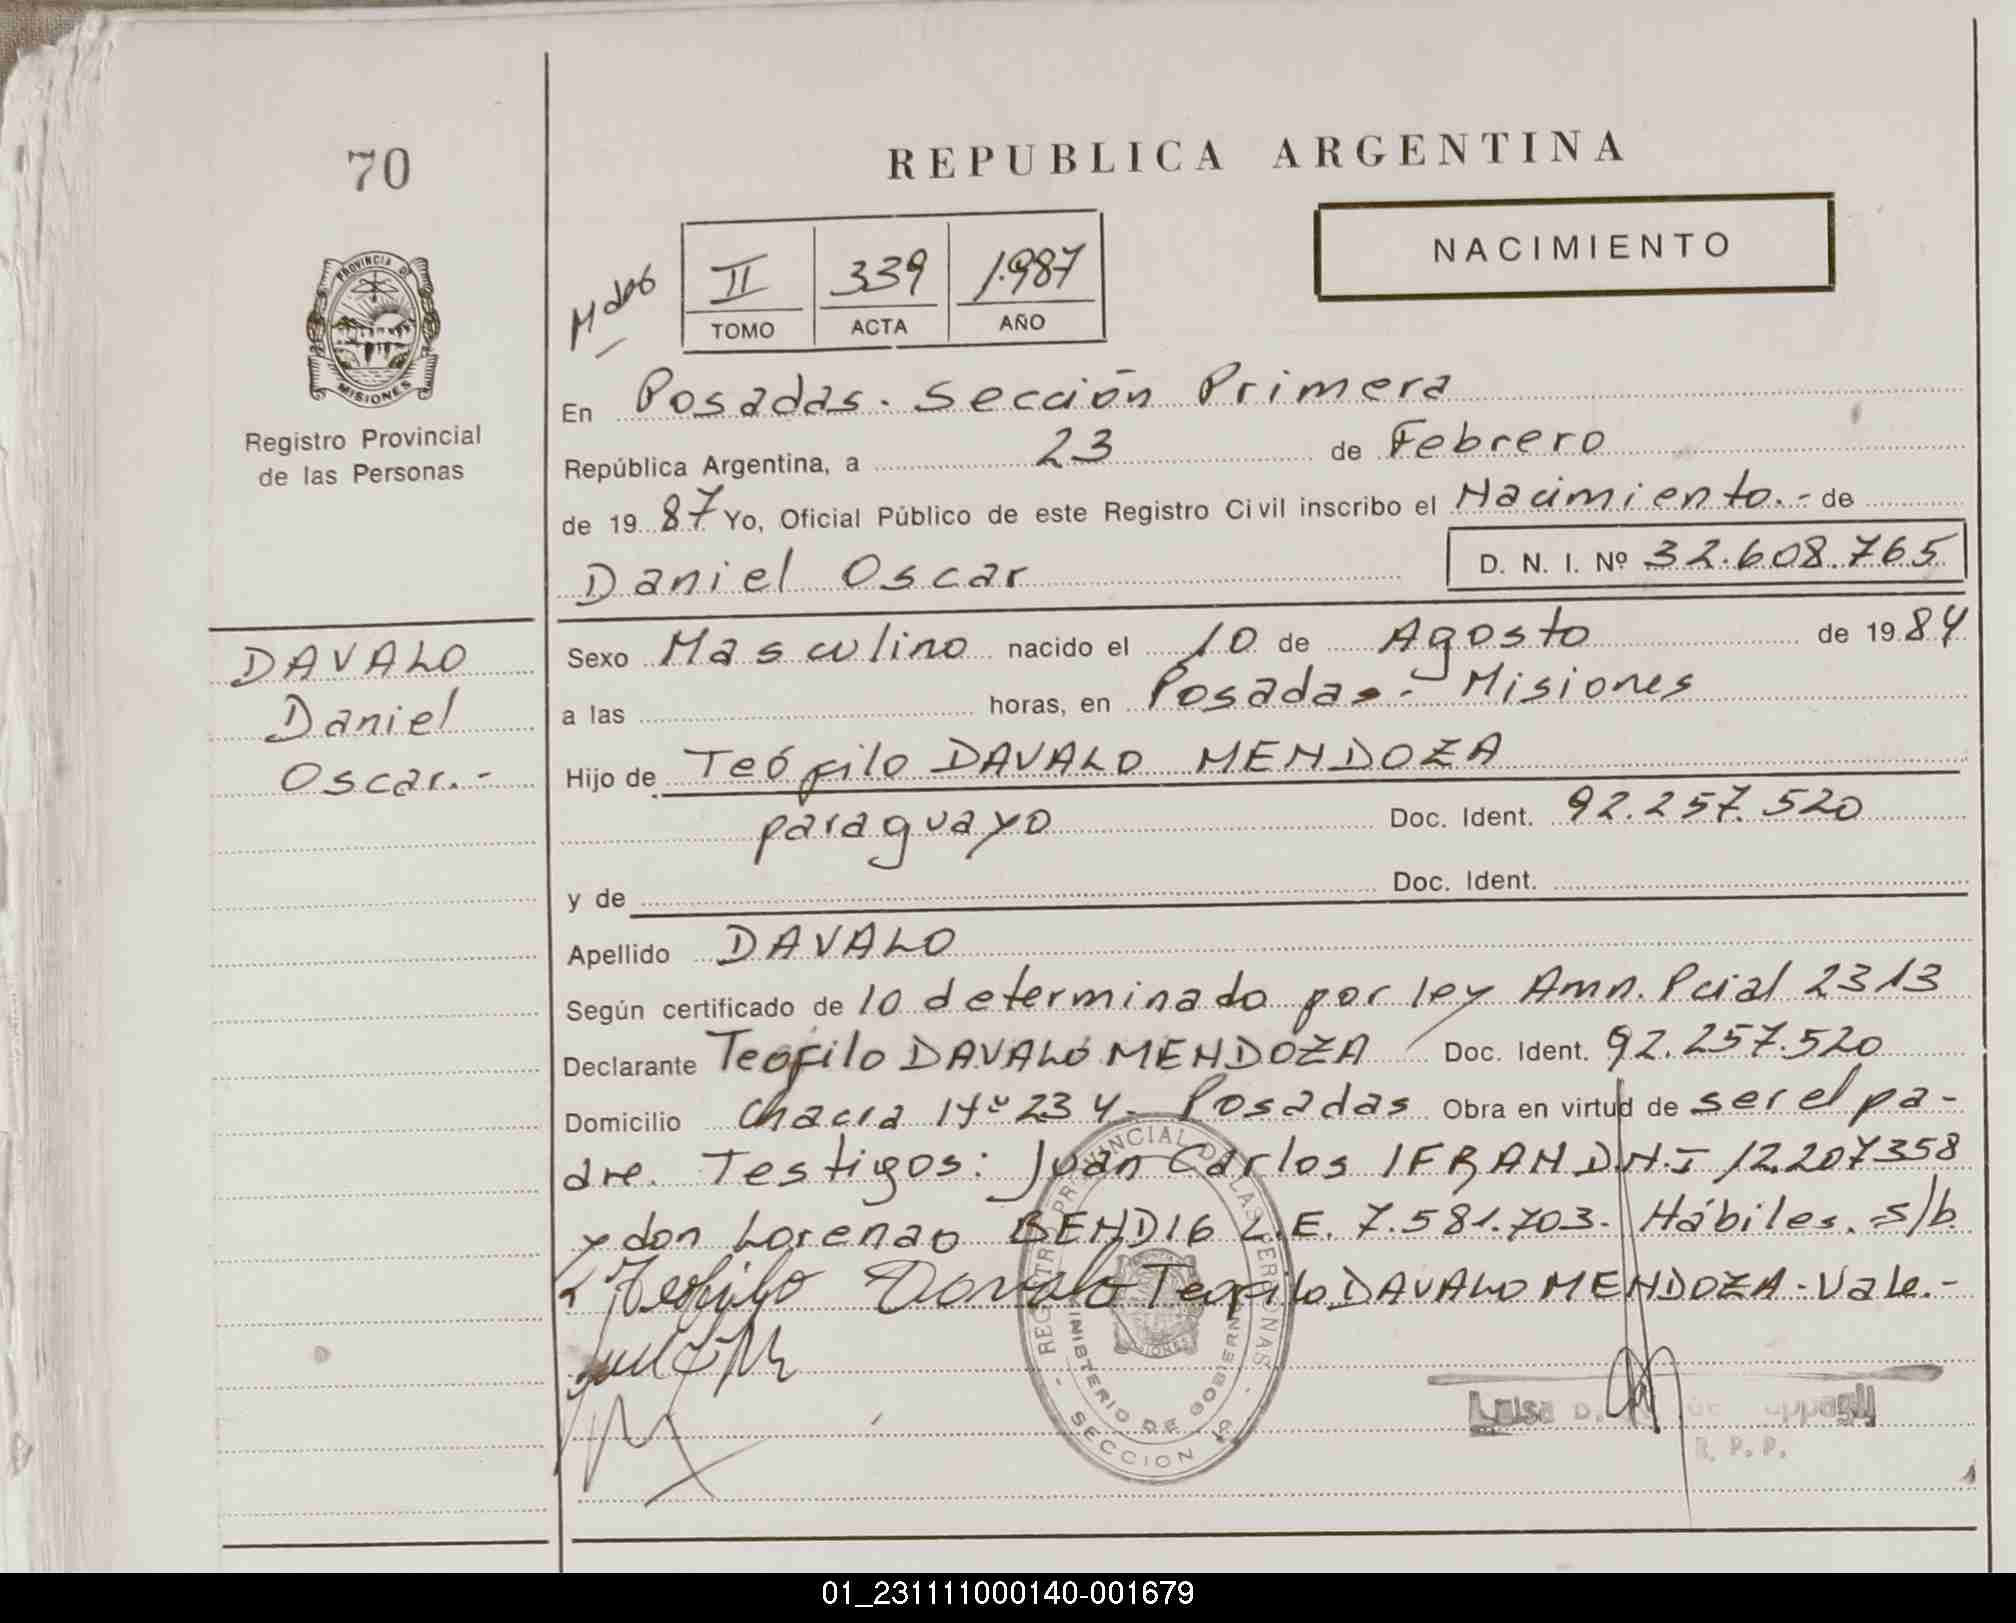 70
REPUBLICA ARGENTINA
NACIMIENTO
II 339 1.987
TOMO ACTA AÑO
PROVINCIA DE
MISIONES
Registro Provincial
de las Personas
En Posadas. Sección Primera
República Argentina, a 23 de Febrero
de 19 87 Yo, Oficial Público de este Registro Civil inscribo el Nacimiento.- de
Daniel Oscar D. N. I. Nº 32.608.765
DAVALO
Daniel
Oscar.-
Sexo Masculino nacido el 10 de Agosto de 19 84
a las horas, en Posadas.- Misiones
Hijo de Teófilo DAVALO MENDOZA
paraguayo Doc. Ident. 92.257.520
y de Doc. Ident.
Apellido DAVALO
Según certificado de lo determinado por ley Amn. Pcial 2313
Declarante Teofilo DAVALO MENDOZA Doc. Ident. 92.257.520
Domicilio Chacra Nº 234- Posadas Obra en virtud de ser el pa-
dre. Testigos: Juan Carlos IFRAN D.N.I 12.207358
y don Lorenzo BENDIG L.E. 7.581.703.- Hábiles. s/b
Teofilo Davalo Teofilo DAVALO MENDOZA - Vale.-
REGISTRO PROVINCIAL DE LAS PERSONAS
MINISTERIO DE GOBIERNO
SECCION 1ª
Luisa
R. P. P.
01_231111000140-001679